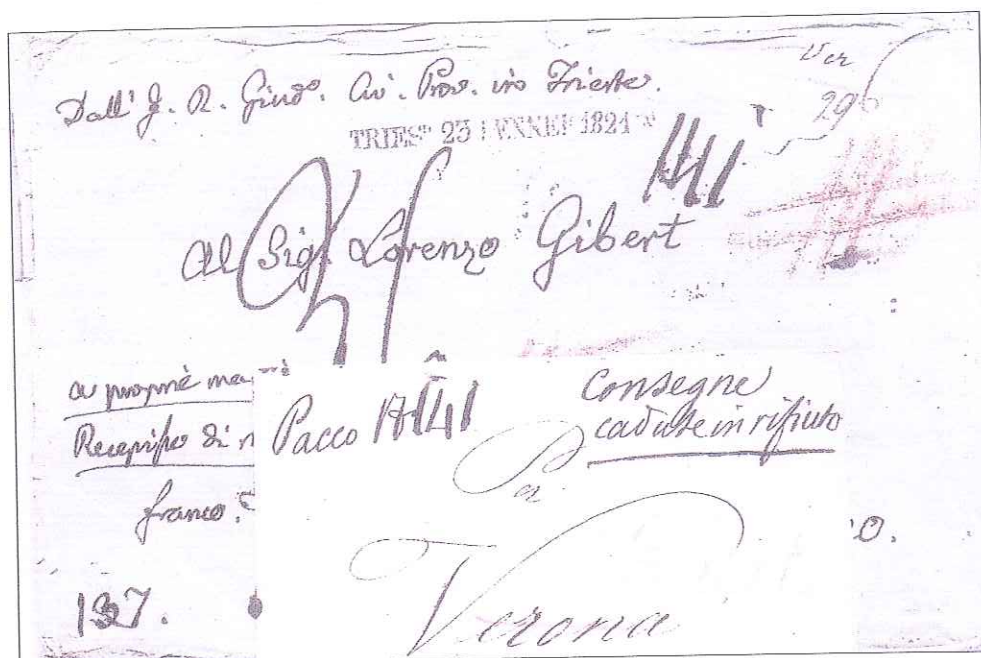 Ver
296
Dall' J. R. Giud°. Civ. Prov. in Trieste.
TRIEST 23 JENNER 1821
Al Sig. Lorenzo Gibert
a proprie
Recepisso di
franco.
Pacco
Consegne
cadute in rifiuto
Per
Verona
O.
127.